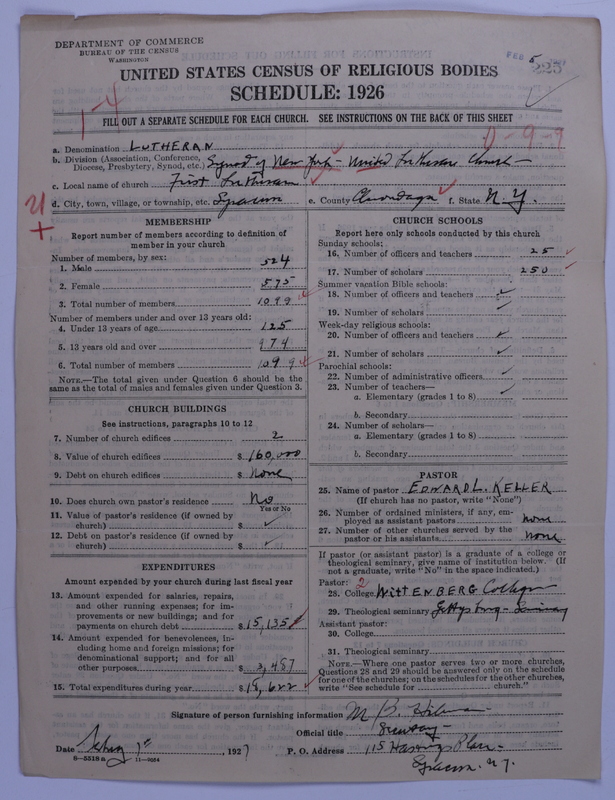 DEPARTMENT OF COMMERCE
BUREAU OF THE CENSUS
WASHINGTON
FEB 5
UNITED STATES CENSUS OF RELIGIOUS BODIES
SCHEDULE: 1926
1-4
FILL OUT A SEPARATE SCHEDULE FOR EACH CHURCH. SEE INSTRUCTIONS ON THE BACK OF THIS SHEET
0-9-9
a. Denomination LUTHERAN
b. Division (Association, Conference, Diocese, Presbytery, Synod, etc.) Synod of New York - United Lutheran Church
c. Local name of church First Lutheran
d. City, town, village, or township, etc. Syracuse e. County Onondaga f. State N.Y.
MEMBERSHIP
Report number of members according to definition of
member in your church
Number of members, by sex:
1. Male 524
2. Female 575
3. Total number of members 1099
Number of members under and over 13 years old:
4. Under 13 years of age 125
5. 13 years old and over 974
6. Total number of members 1099
NOTE.—The total given under Question 6 should be the
same as the total of males and females given under Question 3.
CHURCH BUILDINGS
See instructions, paragraphs 10 to 12
7. Number of church edifices 2
8. Value of church edifices $160,000
9. Debt on church edifices $ None
10. Does church own pastor's residence No
Yes or No
11. Value of pastor's residence (if owned by
church) $
12. Debt on pastor's residence (if owned by
church) $
EXPENDITURES
Amount expended by your church during last fiscal year
13. Amount expended for salaries, repairs,
and other running expenses; for im-
provements or new buildings; and for
payments on church debt $15,135
14. Amount expended for benevolences, in-
cluding home and foreign missions; for
denominational support; and for all
other purposes $3,487
15. Total expenditures during year $18,622
CHURCH SCHOOLS
Report here only schools conducted by this church
Sunday schools:
16. Number of officers and teachers 25
17. Number of scholars 250
Summer vacation Bible schools:
18. Number of officers and teachers
19. Number of scholars
Week-day religious schools:
20. Number of officers and teachers
21. Number of scholars
Parochial schools:
22. Number of administrative officers
23. Number of teachers—
a. Elementary (grades 1 to 8)
b. Secondary
24. Number of scholars—
a. Elementary (grades 1 to 8)
b. Secondary
PASTOR
25. Name of pastor EDWARD L. KELLER
(If church has no pastor, write "None")
26. Number of ordained ministers, if any, em-
ployed as assistant pastors none
27. Number of other churches served by the
pastor or his assistants none
If pastor (or assistant pastor) is a graduate of a college or
theological seminary, give name of institution below. (If
not a graduate, write "No" in the space indicated.)
Pastor: 2
28. College WITTENBERG College
29. Theological seminary Gettysburg - Seminary
Assistant pastor:
30. College
31. Theological seminary
NOTE.—Where one pastor serves two or more churches,
Questions 28 and 29 should be answered only on the schedule
for one of the churches; on the schedules for the other churches,
write "See schedule for church."
Signature of person furnishing information M. B.
Official title Secretary
Date 1st, 1927 P. O. Address 115 Hastings Place
8—5518a 11—9264
Syracuse N.Y.